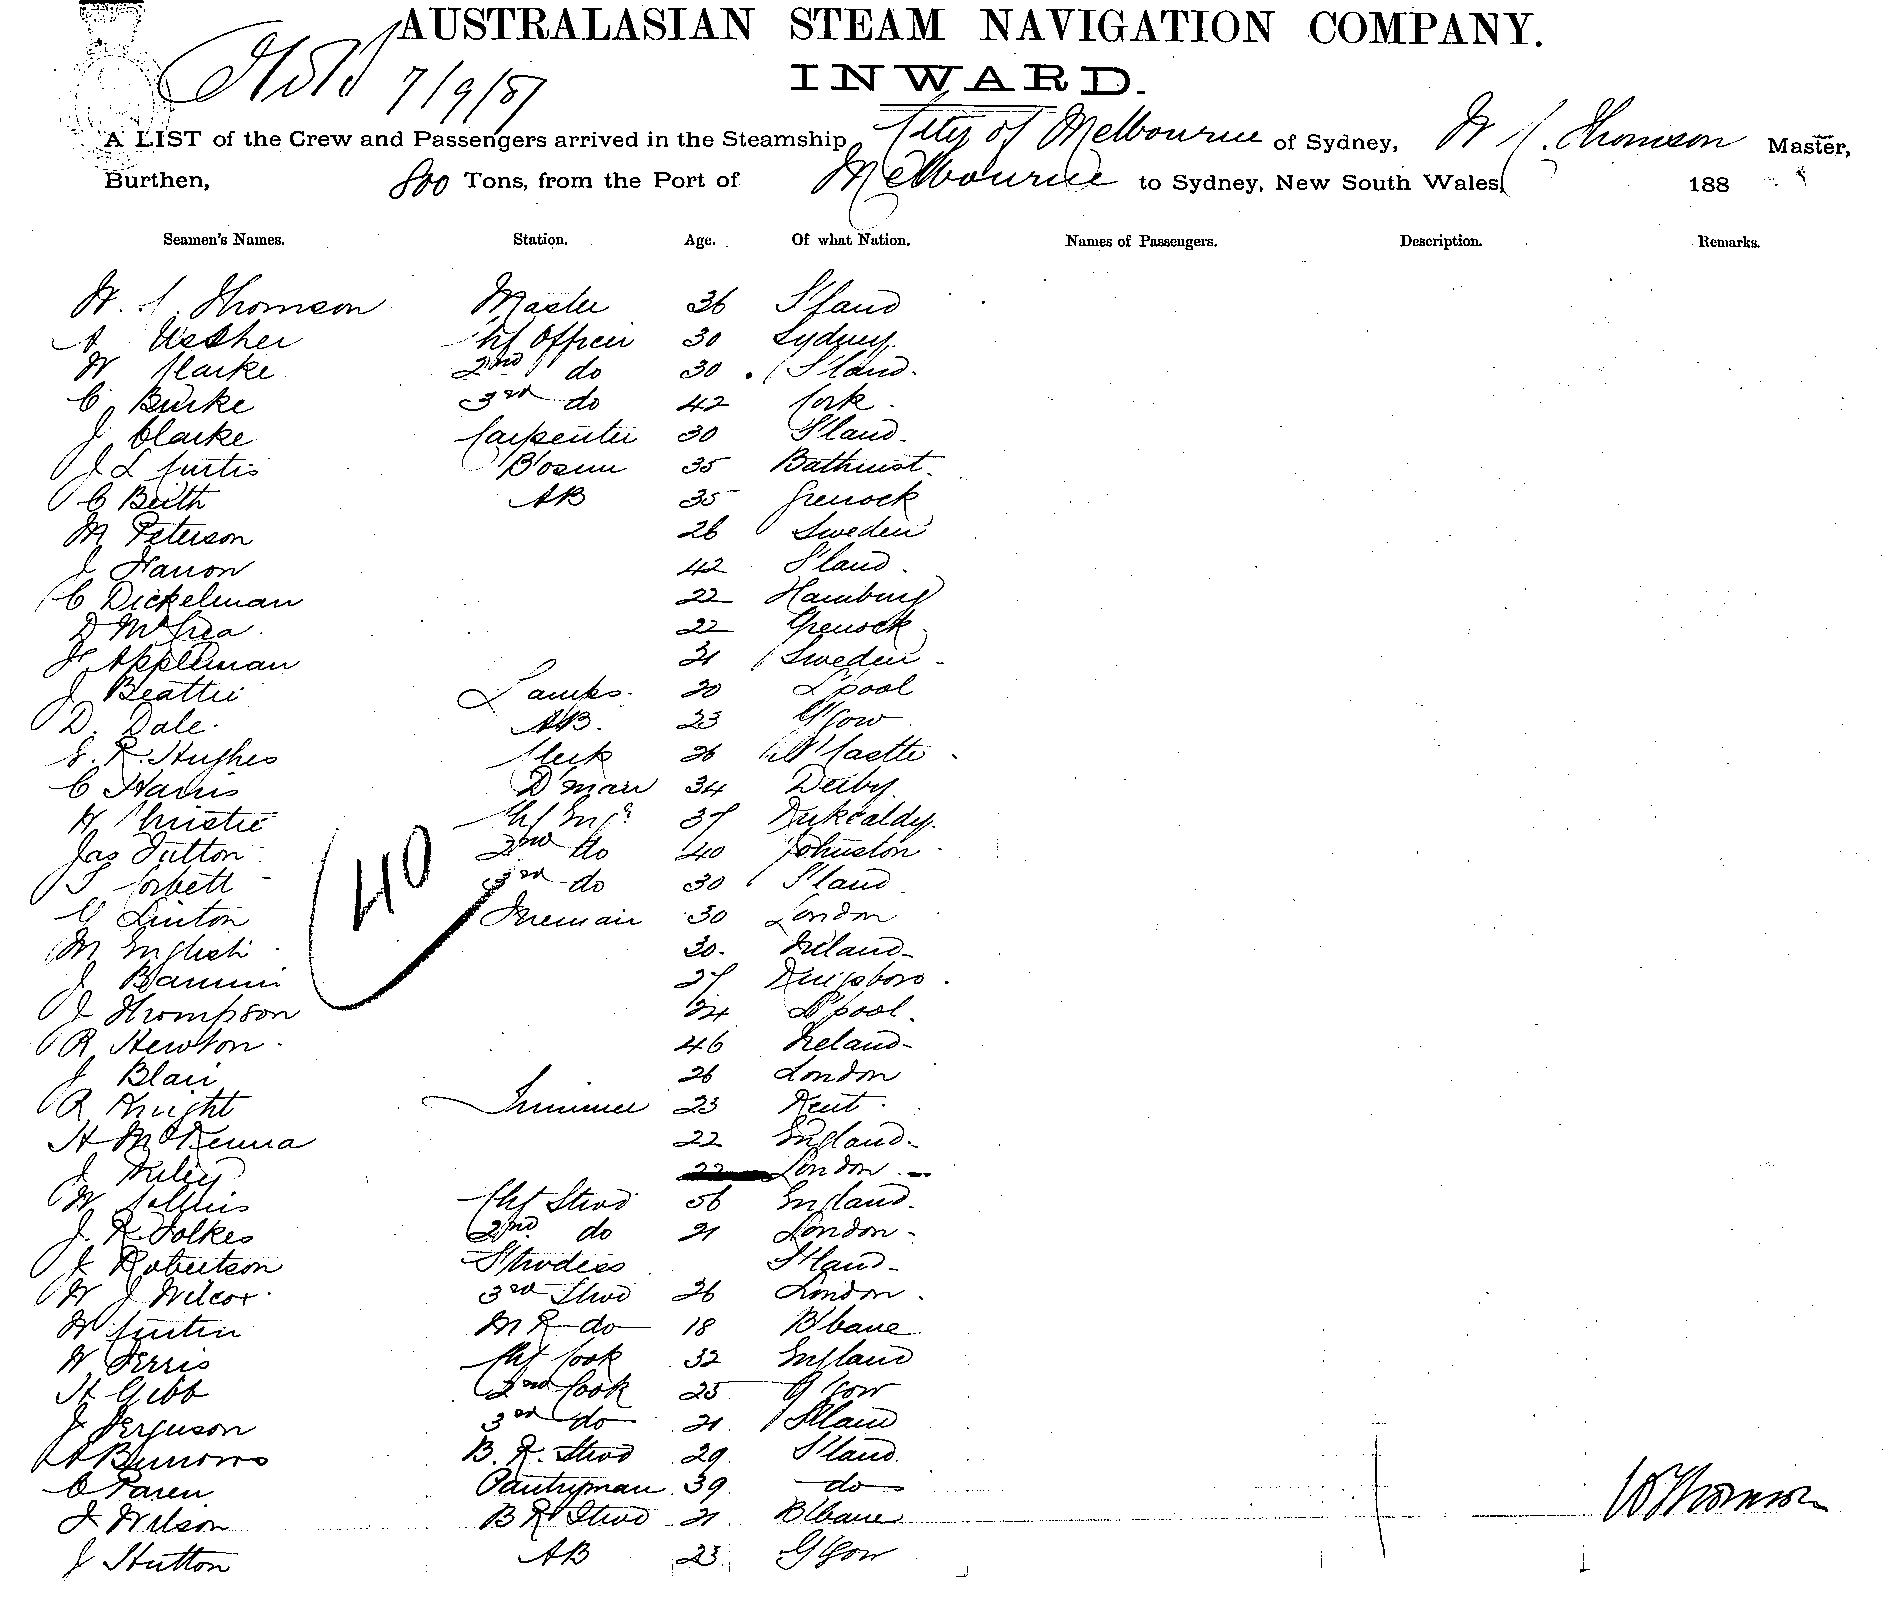 AUSTRALASIAN STEAM NAVIGATION COMPANY.
7/9/87
INWARD.
A LIST of the Crew and Passengers arrived in the Steamship City of Melbourne of Sydney, W Thomson Master,
Burthen, 800 Tons, from the Port of Melbourne to Sydney, New South Wales, 188
Seamen's Names. Station. Age. Of what Nation. Names of Passengers. Description. Remarks.
W. Thomson Master 36 S'land
A Ussher Chf Officer 30 Sydney
W Clarke 2nd do 30 S'land.
C Burke 3rd do 42 Cork.
J Clarke Carpenter 30 S'land.
J L Curtis B'osun 35 Bathurst.
C Beith AB 35 Grenock
M Peterson 26 Sweden
J 42 S'land.
C Dickelman 22 Hamburg
D McCrea 22 Grenock
Appleman 21 Sweden
J Beattie Lamps. 20 L'pool
D. Dale. AB. 23 G'gow
E. R. Hughes Clerk 26 N'Castle
C Harris D'man 34 Derby
W Christie Chf Engr 37
Jas 2nd do 40 Johnston
T Corbett 3rd do 30 S'land
G Linton Fireman 30 London
M English 30. Ireland
J 27
J Thompson 24 L'pool.
R Newton 46 Ireland
J Blair 26 London
R Knight Trimmer 23 Kent
H McKenna 22 England
J Kiley 22 London
W Collins Chf Stwd 56 England.
J. R Folkes 2nd do 21 London
Robertson Stwdess S'land
W J Wilcox 3rd Stwd 26 London.
W Curtin M R do 18 B'bane
W Ferris Chf Cook 32 England
H Gibb 2nd Cook 25 G'gow
J Ferguson 3rd do 21 S'land
A Burrows B. R. Stwd 29 S'land
C Paren Pantryman 39 do
J Wilson B R Stwd 21 B'bane
J Hutton AB 23 G'gow
40
W Thomson